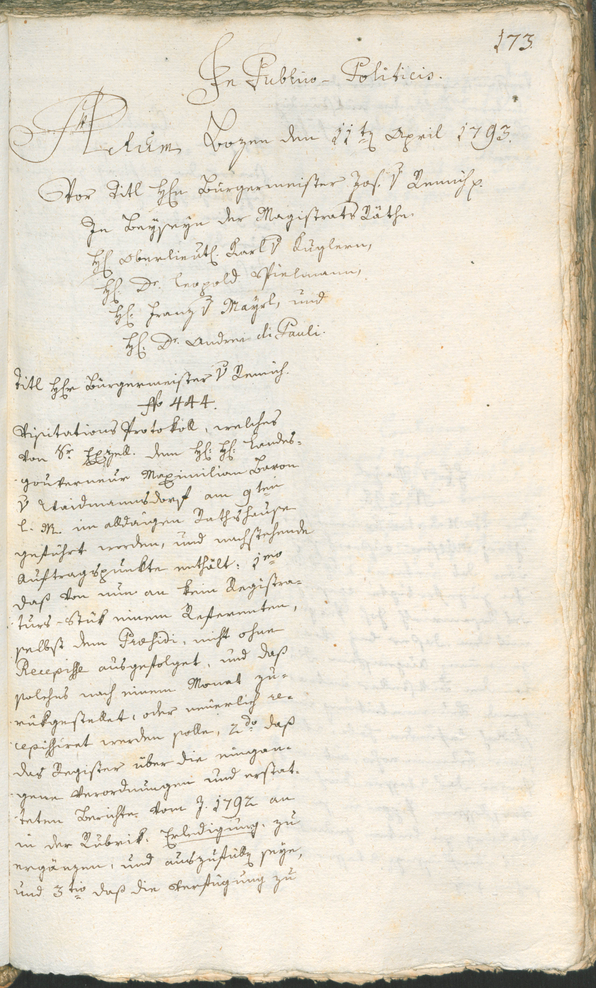 173
In Publico-Politicis.
Actum Bozen den 11tn April 1793.
Vor Titl Hℓn Burgermeister Jos. v Remich p.
In Beyseyn der Magistrats Räthe
Hℓ. Oberlieutt. Karl v Kuglern,
Hℓ. Dr. Leopold Vielmann,
Hℓ. Franz v Mayrl, und
Hℓ. Dr. Andree di Pauli.
Titl Hℓn Burgermeister v Remich.
No 444.
Visitations Protokoll, welches
von Sr Exzell. dem Hℓ. Hℓ. Landes-
gouverneur Maximilian Baron
v Waidmannsdorf am 9ten
l. M. im alldaigen Rathshause
geführt worden, und nachstehende
Auftragspunkte enthält: 1mo
daß von nun an kein Registra-
turs-Stük einem Referenten,
selbst dem Præsidi, nicht ohne
Recepisse ausgefolget, und daß
solches nach einem Monat zu-
rükgestellet, oder neuerlich re-
cepissiret werden solle, 2do daß
das Register über die eingan-
gene Verordnungen und erstat-
teten Berichte vom J. 1792 an
in der Rubrik: Erledigung: zu
ergänzen, und auszufüllen seye,
und 3tio daß die Verfügung zu